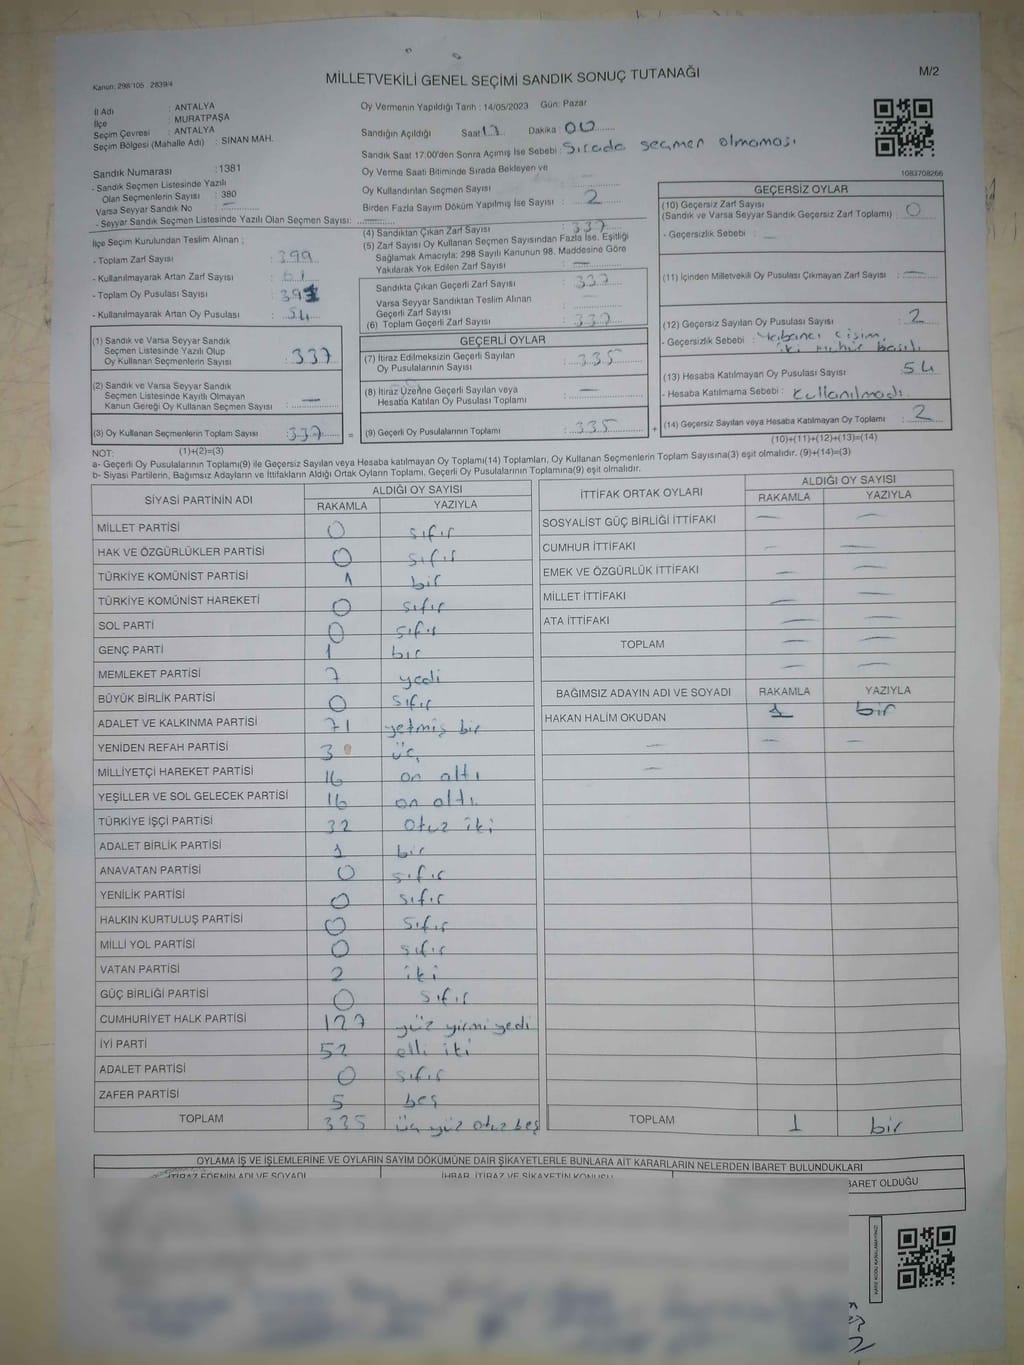 Kanun: 298/105 , 2839/4
MİLLETVEKİLİ GENEL SEÇİMİ SANDIK SONUÇ TUTANAĞI
M/2
İl Adı : ANTALYA
İlçe : MURATPAŞA
Seçim Çevresi : ANTALYA
Seçim Bölgesi (Mahalle Adı) : SINAN MAH.
Oy Vermenin Yapıldığı Tarih : 14/05/2023 Gün: Pazar
Sandığın Açıldığı Saat 17 Dakika 00
Sandık Saat 17:00'den Sonra Açımış İse Sebebi : Sırada seçmen olmaması
Oy Verme Saati Bitiminde Sırada Bekleyen ve
Oy Kullandırılan Seçmen Sayısı :
Birden Fazla Sayım Döküm Yapılmış İse Sayısı : 2
1083708266
Sandık Numarası : 1381
- Sandık Seçmen Listesinde Yazılı
Olan Seçmenlerin Sayısı : 380
Varsa Seyyar Sandık No : —
- Seyyar Sandık Seçmen Listesinde Yazılı Olan Seçmen Sayısı: —
İlçe Seçim Kurulundan Teslim Alınan ;
- Toplam Zarf Sayısı : 399
- Kullanılmayarak Artan Zarf Sayısı :
- Toplam Oy Pusulası Sayısı :
- Kullanılmayarak Artan Oy Pusulası : 54
(1) Sandık ve Varsa Seyyar Sandık
Seçmen Listesinde Yazılı Olup
Oy Kullanan Seçmenlerin Sayısı : 337
(2) Sandık ve Varsa Seyyar Sandık
Seçmen Listesinde Kayıtlı Olmayan
Kanun Gereği Oy Kullanan Seçmen Sayısı : —
(3) Oy Kullanan Seçmenlerin Toplam Sayısı : 337 =
(4) Sandıktan Çıkan Zarf Sayısı : 337
(5) Zarf Sayısı Oy Kullanan Seçmen Sayısından Fazla İse, Eşitliği
Sağlamak Amacıyla: 298 Sayılı Kanunun 98. Maddesine Göre
Yakılarak Yok Edilen Zarf Sayısı : —
Sandıkta Çıkan Geçerli Zarf Sayısı : 337
Varsa Seyyar Sandıktan Teslim Alınan
Geçerli Zarf Sayısı :
(6) Toplam Geçerli Zarf Sayısı : 337
GEÇERLİ OYLAR
(7) İtiraz Edilmeksizin Geçerli Sayılan
Oy Pusulalarının Sayısı : 335
(8) İtiraz Üzerine Geçerli Sayılan veya
Hesaba Katılan Oy Pusulası Toplamı : —
(9) Geçerli Oy Pusulalarının Toplamı : 335 +
GEÇERSİZ OYLAR
(10) Geçersiz Zarf Sayısı
(Sandık ve Varsa Seyyar Sandık Geçersiz Zarf Toplamı) : 0
- Geçersizlik Sebebi : —
(11) İçinden Milletvekili Oy Pusulası Çıkmayan Zarf Sayısı : —
(12) Geçersiz Sayılan Oy Pusulası Sayısı : 2
- Geçersizlik Sebebi : Yabancı cisim
iki mühür basılı
(13) Hesaba Katılmayan Oy Pusulası Sayısı : 54
- Hesaba Katılmama Sebebi : kullanılmadı
(14) Geçersiz Sayılan veya Hesaba Katılmayan Oy Toplamı : 2
NOT: (1)+(2)=(3)
(10)+(11)+(12)+(13)=(14)
a- Geçerli Oy Pusulalarının Toplamı(9) ile Geçersiz Sayılan veya Hesaba katılmayan Oy Toplamı(14) Toplamları, Oy Kullanan Seçmenlerin Toplam Sayısına(3) eşit olmalıdır. (9)+(14)=(3)
b- Siyasi Partilerin, Bağımsız Adayların ve İttifakların Aldığı Ortak Oyların Toplamı, Geçerli Oy Pusulalarının Toplamına(9) eşit olmalıdır.
SİYASİ PARTİNİN ADI
ALDIĞI OY SAYISI
RAKAMLA YAZIYLA
MİLLET PARTİSİ 0 sıfır
HAK VE ÖZGÜRLÜKLER PARTİSİ 0 sıfır
TÜRKİYE KOMÜNİST PARTİSİ 1 bir
TÜRKİYE KOMÜNİST HAREKETİ 0 sıfır
SOL PARTİ 0 sıfır
GENÇ PARTİ 1 bir
MEMLEKET PARTİSİ 7 yedi
BÜYÜK BİRLİK PARTİSİ 0 sıfır
ADALET VE KALKINMA PARTİSİ 71 yetmiş bir
YENİDEN REFAH PARTİSİ 3 üç
MİLLİYETÇİ HAREKET PARTİSİ 16 on altı
YEŞİLLER VE SOL GELECEK PARTİSİ 16 on altı
TÜRKİYE İŞÇİ PARTİSİ 32 otuz iki
ADALET BİRLİK PARTİSİ 1 bir
ANAVATAN PARTİSİ 0 sıfır
YENİLİK PARTİSİ 0 sıfır
HALKIN KURTULUŞ PARTİSİ 0 sıfır
MİLLİ YOL PARTİSİ 0 sıfır
VATAN PARTİSİ 2 iki
GÜÇ BİRLİĞİ PARTİSİ 0 sıfır
CUMHURİYET HALK PARTİSİ 127 yüz yirmi yedi
İYİ PARTİ 52 elli iki
ADALET PARTİSİ 0 sıfır
ZAFER PARTİSİ 5 beş
TOPLAM 335 üç yüz otuz beş
İTTİFAK ORTAK OYLARI
ALDIĞI OY SAYISI
RAKAMLA YAZIYLA
SOSYALİST GÜÇ BİRLİĞİ İTTİFAKI — —
CUMHUR İTTİFAKI — —
EMEK VE ÖZGÜRLÜK İTTİFAKI — —
MİLLET İTTİFAKI — —
ATA İTTİFAKI — —
TOPLAM — —
— —
BAĞIMSIZ ADAYIN ADI VE SOYADI RAKAMLA YAZIYLA
HAKAN HALİM OKUDAN 1 bir
— — —
—
TOPLAM 1 bir
OYLAMA İŞ VE İŞLEMLERİNE VE OYLARIN SAYIM DÖKÜMÜNE DAİR ŞİKAYETLERLE BUNLARA AİT KARARLARIN NELERDEN İBARET BULUNDUKLARI
İTİRAZ EDENİN ADI VE SOYADI İHBAR, İTİRAZ VE ŞİKAYETİN KONUSU BARET OLDUĞU